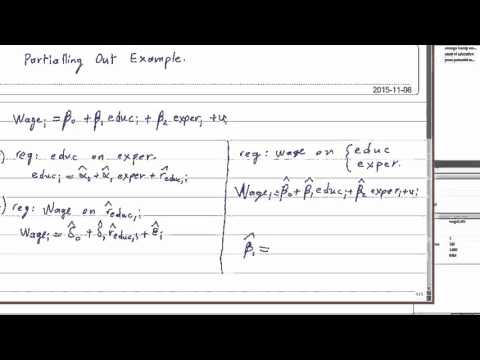 Partialling Out Example.
2015-11-08
Wage_i = β_0 + β_1 educ_i + β_2 exper_i + u_i
) reg: educ on exper.
educ_i = α̂_0 + α̂_1 exper + r̂_educ,i
) reg: Wage on r̂_educ,i
Wage_i = δ̂_0 + δ̂_1 r̂_educ,i + ê_i
reg: wage on { educ
exper.
Wage_i = β̂_0 + β̂_1 educ_i + β̂_2 exper_i + u_i
β̂_1 =